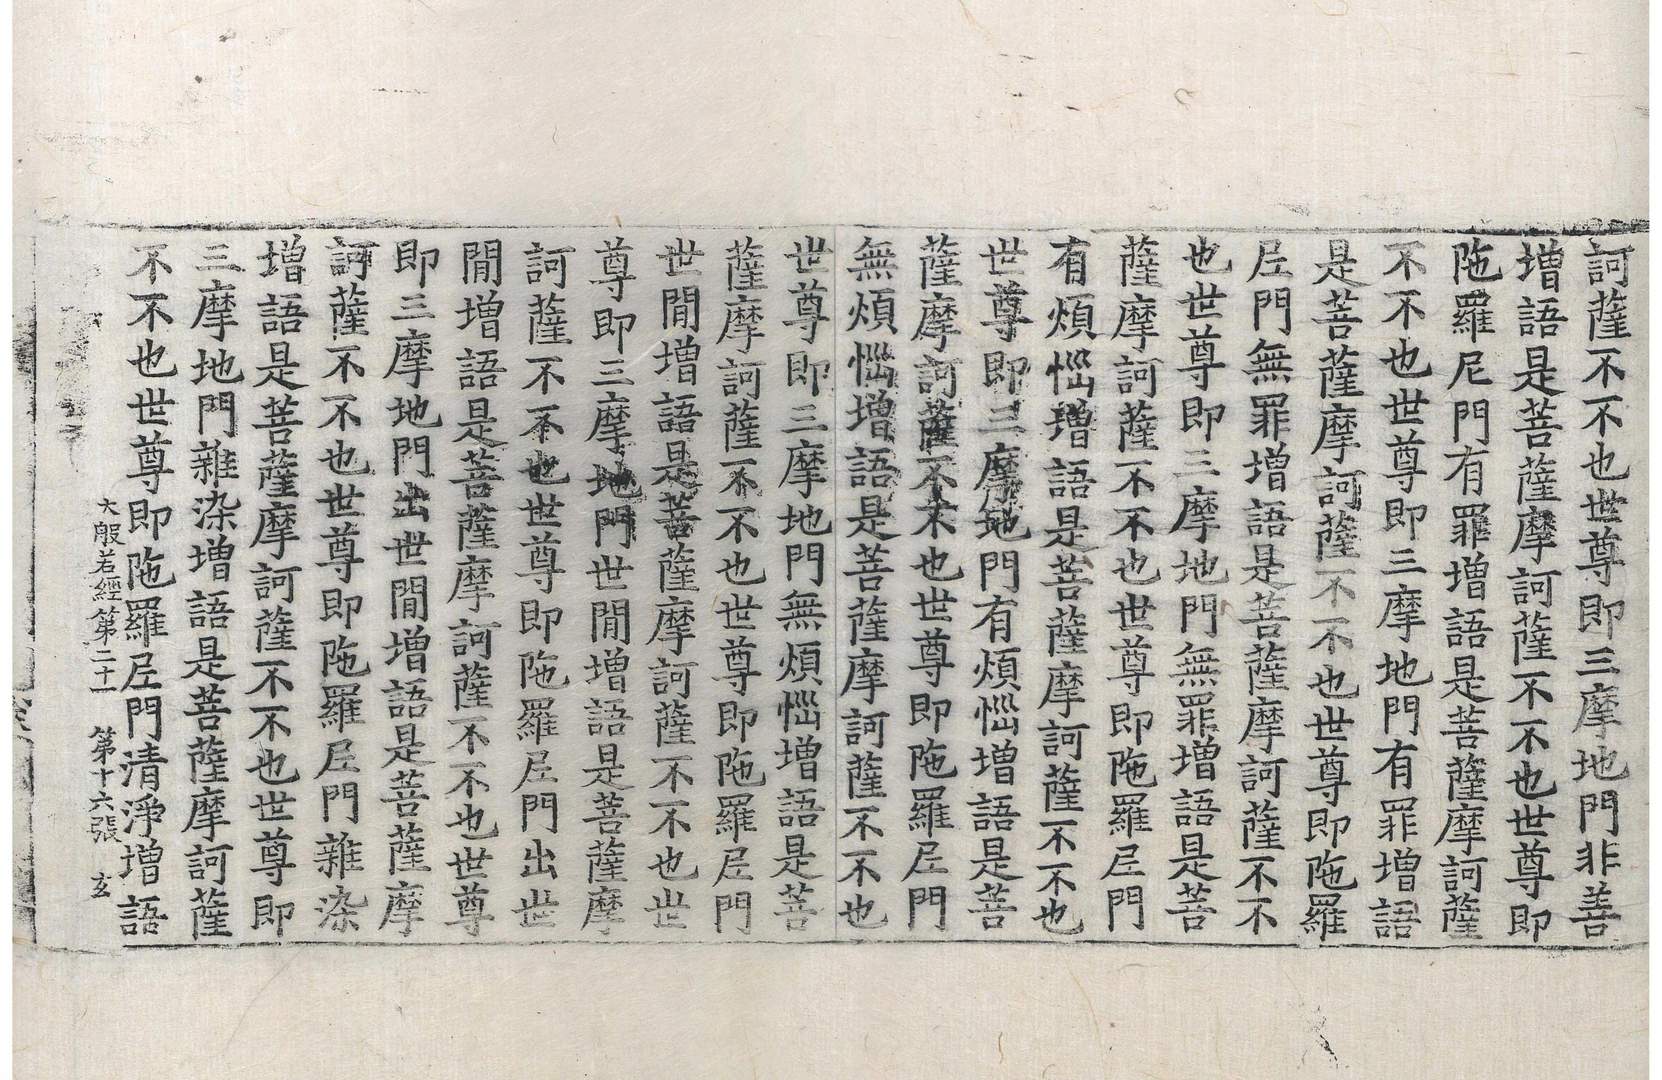 訶薩不不也世尊即三摩地門非善
增語是菩薩摩訶薩不不也世尊即
陁羅尼門有罪增語是菩薩摩訶薩
不不也世尊即三摩地門有罪增語
是菩薩摩訶薩不不也世尊即陁羅
尼門無罪增語是菩薩摩訶薩不不
也世尊即三摩地門無罪增語是菩
薩摩訶薩不不也世尊即陁羅尼門
有煩惱增語是菩薩摩訶薩不不也
世尊即三摩地門有煩惱增語是菩
薩摩訶薩不不也世尊即陁羅尼門
無煩惱增語是菩薩摩訶薩不不也
世尊即三摩地門無煩惱增語是菩
薩摩訶薩不不也世尊即陁羅尼門
世間增語是菩薩摩訶薩不不也世
尊即三摩地門世間增語是菩薩摩
訶薩不不也世尊即陁羅尼門出世
間增語是菩薩摩訶薩不不也世尊
即三摩地門出世間增語是菩薩摩
訶薩不不也世尊即陁羅尼門雜染
增語是菩薩摩訶薩不不也世尊即
三摩地門雜染增語是菩薩摩訶薩
不不也世尊即陁羅尼門清淨增語
大般若經第二十一 第十六張 玄